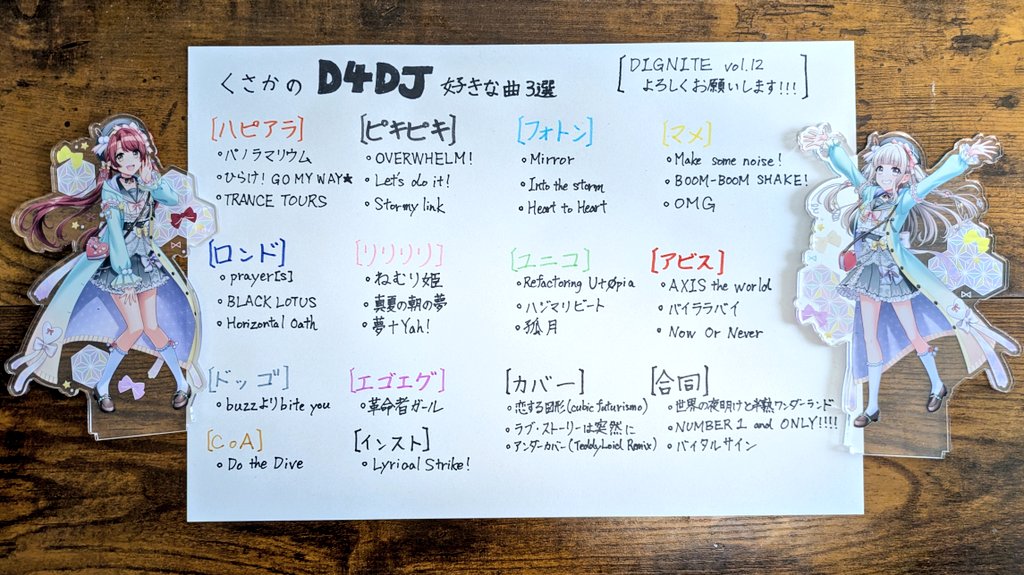 くさかの D4DJ 好きな曲3選
[DIGNITE vol.12
よろしくお願いします!!!]
[ハピアラ]
・パノラマリウム
・ひらけ! GO MY WAY★
・TRANCE TOURS
[ピキピキ]
・OVERWHELM!
・Let's do it!
・Stormy link
[フォトン]
・Mirror
・Into the storm
・Heart to Heart
[マメ]
・Make some noise!
・BOOM-BOOM SHAKE!
・OMG
[ロンド]
・prayer[s]
・BLACK LOTUS
・Horizontal Oath
[リリリリ]
・ねむり姫
・真夏の朝の夢
・夢十Yah!
[ユニコ]
・Refactoring Utøpia
・ハジマリビート
・孤月
[アビス]
・AXIS the world
・バイララバイ
・Now Or Never
[ドッゴ]
・buzzよりbite you
[エゴエグ]
・革命者ガール
[カバー]
・恋する図形(cubic futurismo)
・ラブ・ストーリーは突然に
・アンダーカバー(TeddyLoid Remix)
[合同]
・世界の夜明けと半熟ワンダーランド
・NUMBER 1 and ONLY!!!!
・バイタルサイン
[CoA]
・Do the Dive
[インスト]
・Lyrical Strike!